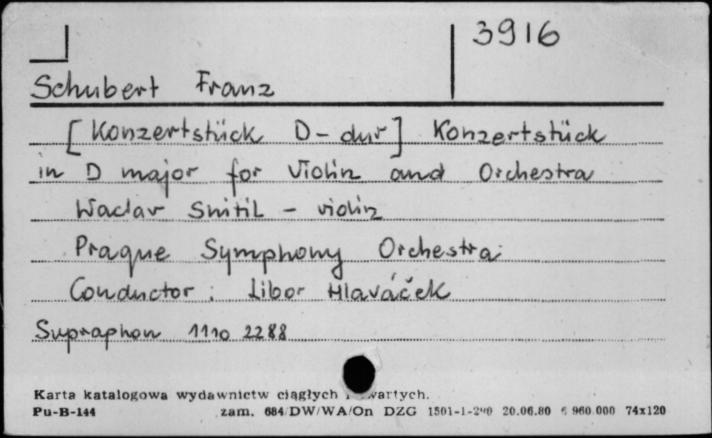 3916
Schubert Franz
[Konzertstück D-dur] Konzertstück
in D major for Violin and Orchestra
Waclav Snitil - violin
Prague Symphony Orchestra
Conductor: Libor Hlaváček
Supraphon 1110 2288
Karta katalogowa wydawnictw ciągłych
Pu-B-144 zam. 684/DW/WA/On DZG 1501-1- 20.06.80 960.000 74x120